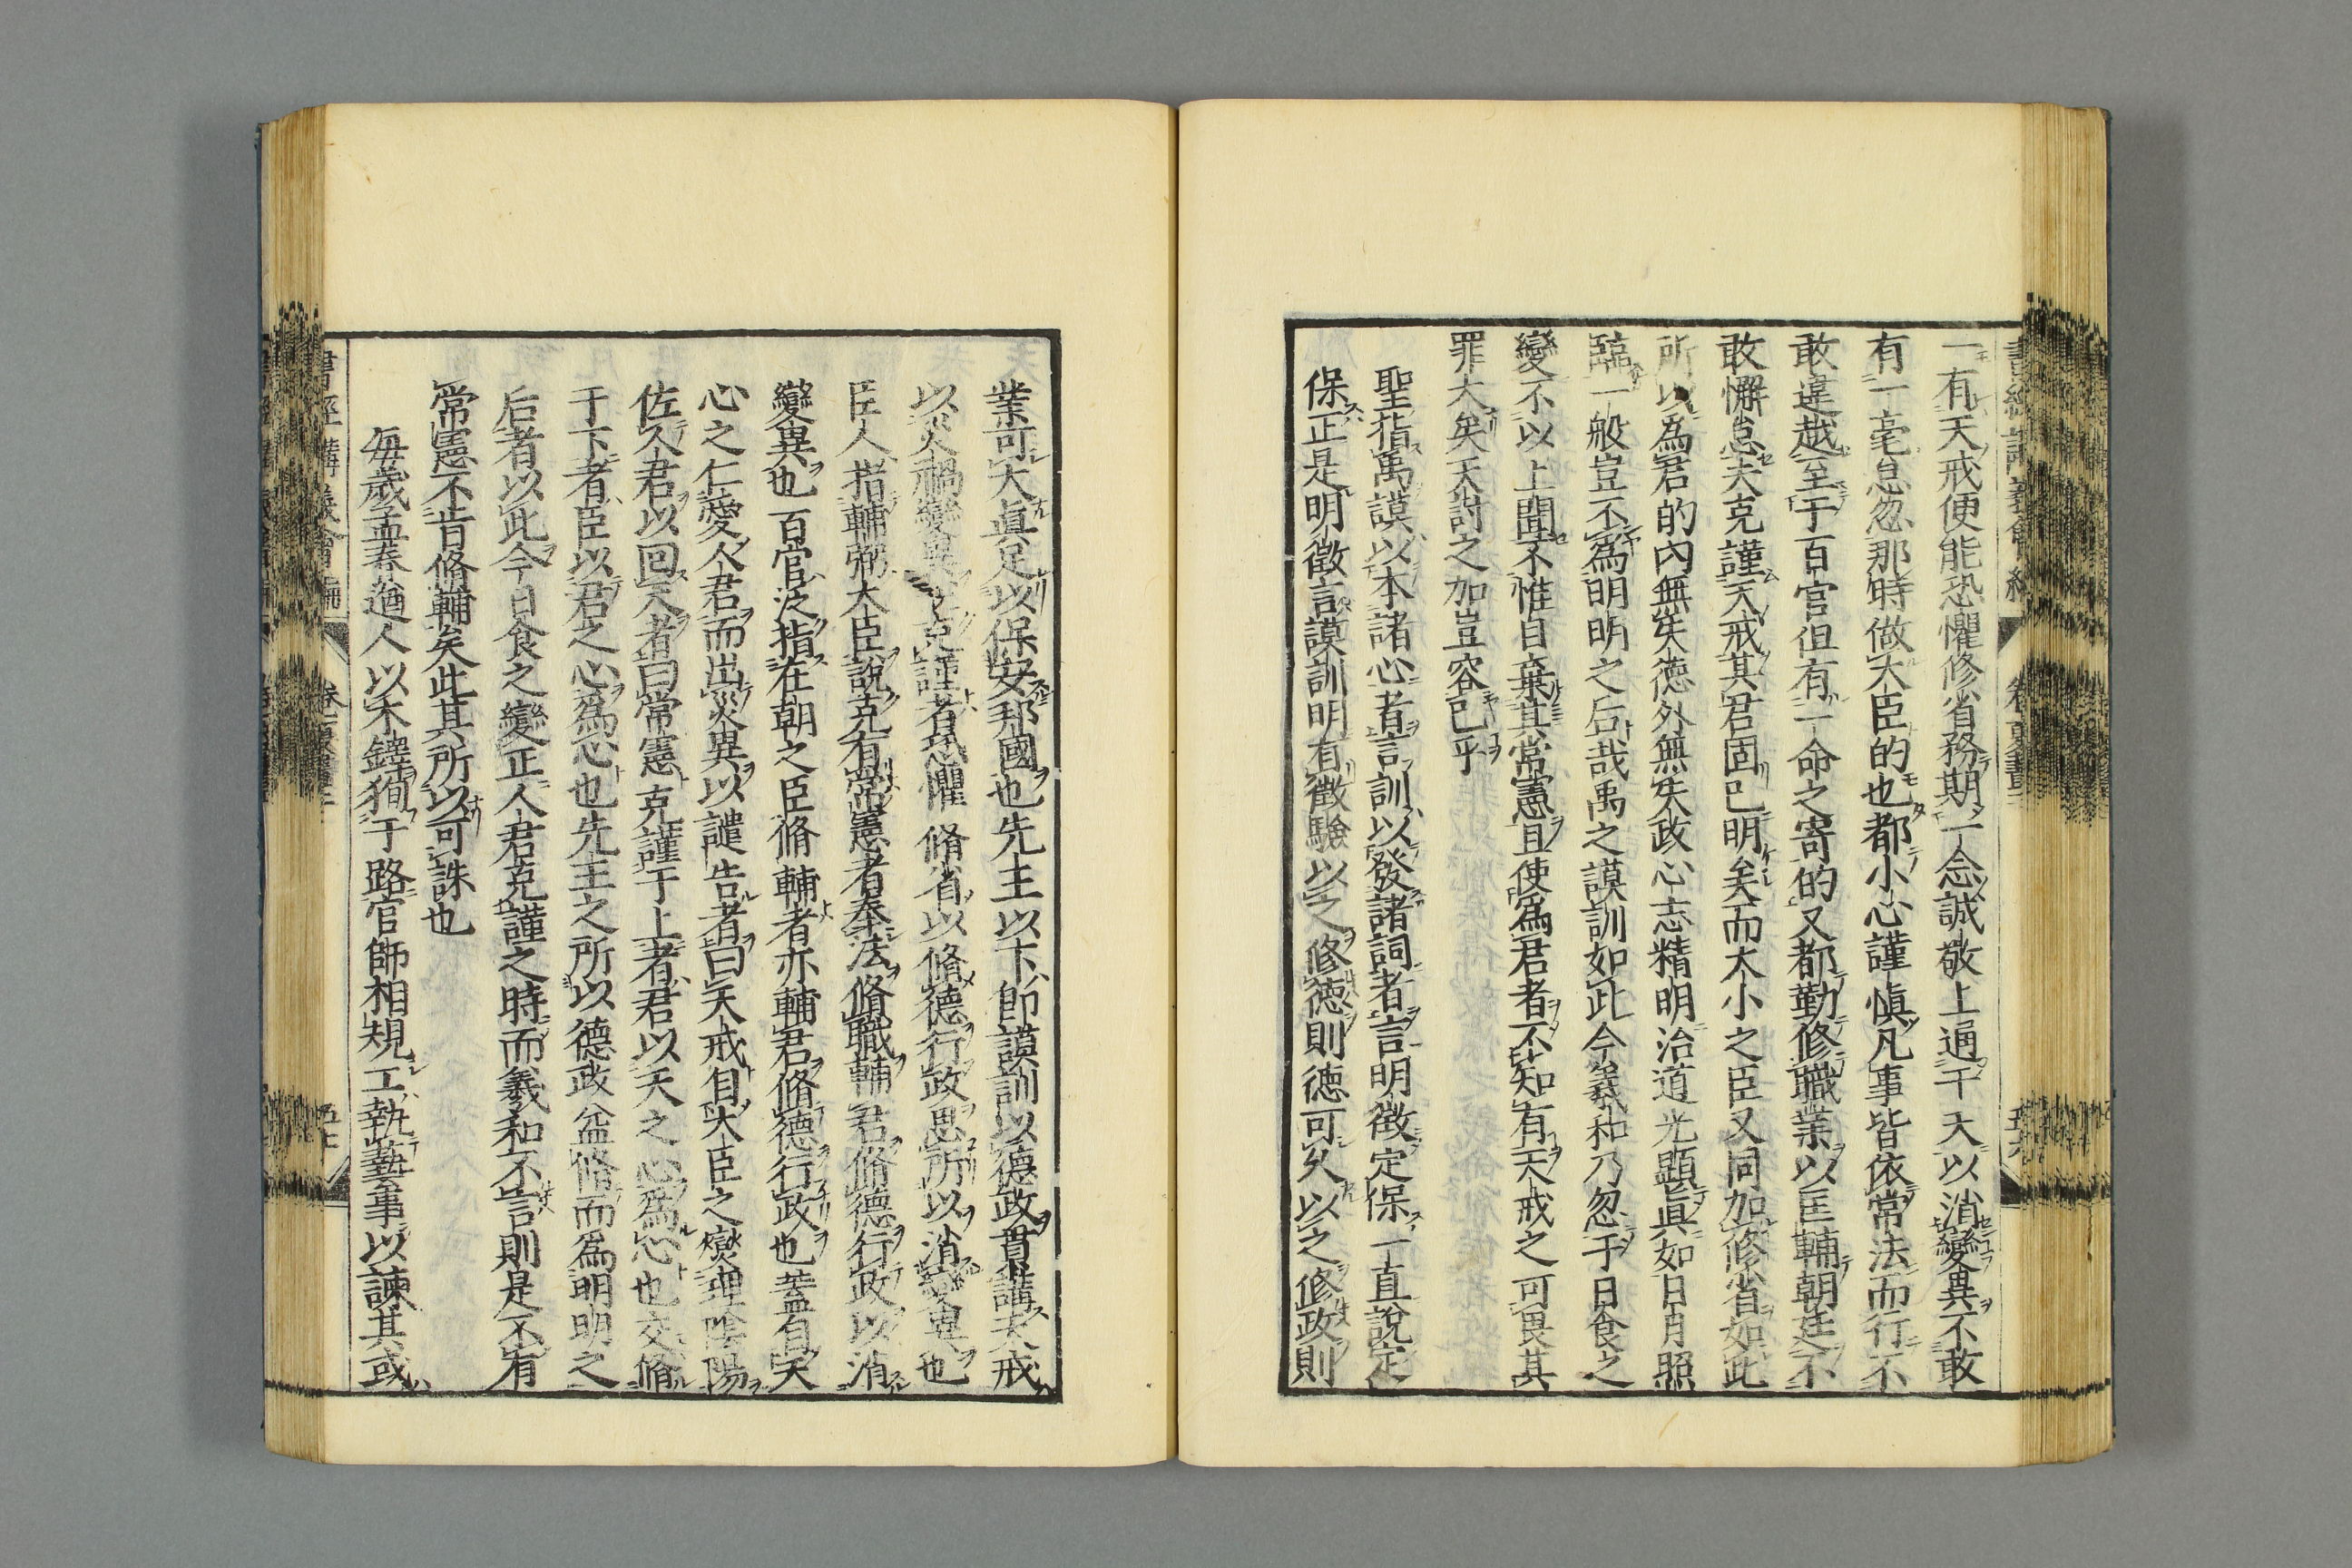 一有天戒便能恐懼修省務期一念誠敬上通于天以消變異不敢
有一毫怠忽那時做大臣的也都小心謹慎凡事皆依常法而行不
敢違越至于百官但有一命之寄的又都勤修職業以匡輔朝廷不
敢懈怠夫克謹天戒其君固已明矣而大小之臣又同加修省如此
所以爲君的內無失德外無失政心志精明治道光顯眞如日月照
臨一般豈不爲明明之后哉禹之謨訓如此今羲和乃忽于日食之
變不以上聞不惟自棄其常憲且使爲君者不知有天戒之可畏其
罪大矣天討之加豈容已乎
聖指禹謨以本諸心者言訓以發諸詞者言明徵定保一直說定
保正是明徵言謨訓明有徵驗以之修德則德可久以之修政則
業可大眞足以保安邦國也先王以下卽謨訓以德政貫講天戒
以災禍變異言克謹者恐懼脩省以脩德行政思所以消變異也
臣人指輔弼大臣說克有常憲者奉法脩職輔君脩德行政以消
變異也百官泛指在朝之臣脩輔者亦輔君脩德行政也蓋自天
心之仁愛人君而出災異以譴告者曰天戒自大臣之燮理陰陽
佐人君以回天者曰常憲克謹于上者君以天之心爲心也交脩
于下者臣以君之心爲心也先王之所以德政益脩而爲明明之
后者以此今日食之變正人君克謹之時而羲和不言則是不有
常憲不肯脩輔矣此其所以可誅也
每歲孟春遒人以木鐸狥于路官師相規工執藝事以諫其或
書經講義會編
卷二夏書
五七